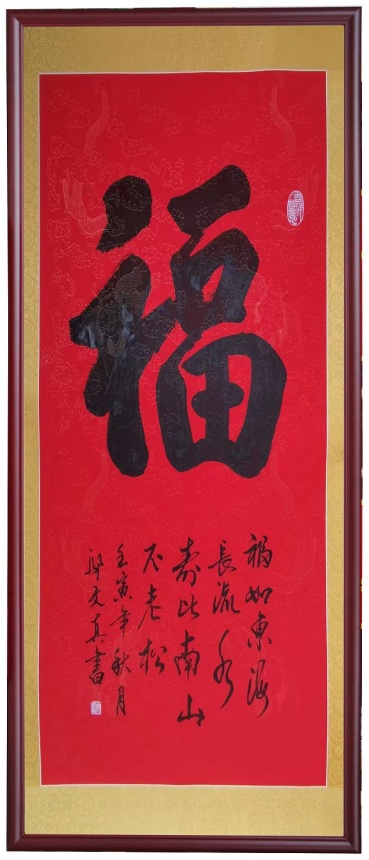 福
福如東海
長流水
壽比南山
不老松
壬寅年秋月
文真書